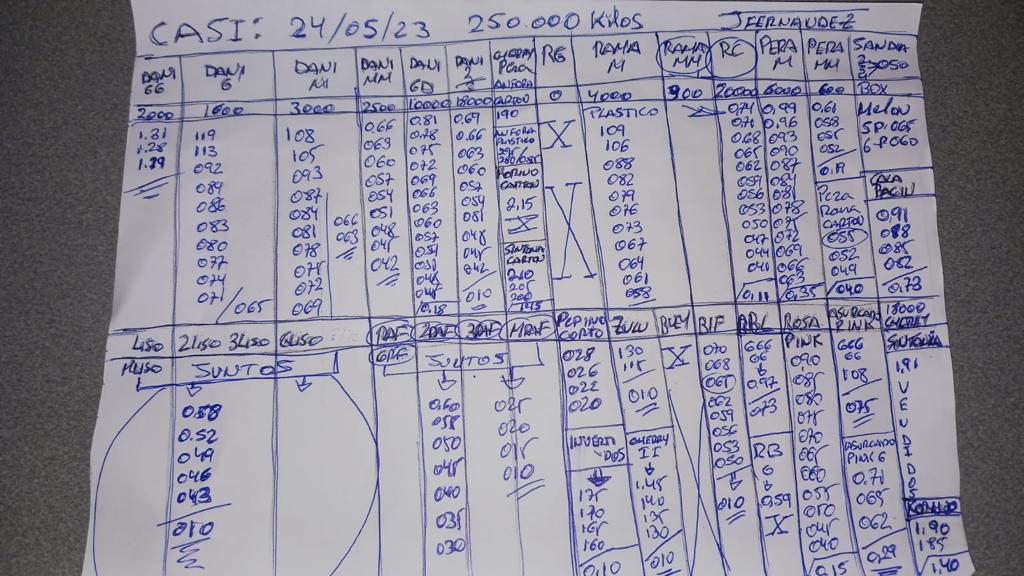 CASI: 24/05/23 250.000 Kilos JFERNANDEZ
DANI GG
2000
1.31
1.28
1.19
DANI G
1600
119
113
092
089
086
083
080
077
074
071
065
DANI M
3000
108
105
093
087
084
081
078
075
072
069
066
063
DANI MM
2500
0.66
063
060
057
054
051
048
045
042
DANI GD
10000
0.81
0.78
075
072
069
066
063
060
057
054
051
048
045
0.18
DANI 2 3
18000
0.69
0.66
063
060
057
054
081
048
045
042
010
CHERRY PERA
CARTON
190
PLASTICO
PEPINO CARTON
2.15
X
CARTON
210
205
200
195
RG
0
X
X
RAMA M
4000
PLASTICO
109
106
088
082
079
076
073
067
064
061
058
RAMA MM
900
RC
20000
0.74
071
068
065
062
059
056
053
050
047
044
041
0.11
PERA M
6000
0.99
0.96
093
090
087
084
081
078
075
072
069
066
063
0.35
PERA MM
600
0.61
058
055
052
0.19
PERA RAMA CARTON
055
052
049
040
SANDIA
050
BOX
MELON
5P.065
6-P060
COLA
0.91
088
085
082
0.73
4LISO 2LISO 3LISO 6LISO
MLISO
JUNTOS
0.58
0.52
049
046
043
010
RAF 2RAF 3RAF MRAF
GRAF
JUNTOS
0.60
055
050
045
040
035
030
025
020
015
010
PEPINO CORTO
028
026
022
020
INVERTIDOS
175
170
165
160
0.10
ZULU
130
115
010
CHERRY II
1.45
140
135
130
010
BLEY
X
BIF
070
068
065
062
059
056
053
050
010
RBL
666
66
0.97
073
RB G
0.59
X
ROSA PINK
090
085
080
075
070
065
060
055
050
045
040
0.15
ASURCADO PINK
666
66
108
075
ASURCADO PINK G
0.71
065
062
0.29
18000 CHERRY
1.91
V
E
U
D
I
D
O
S
1.90
185
1.40